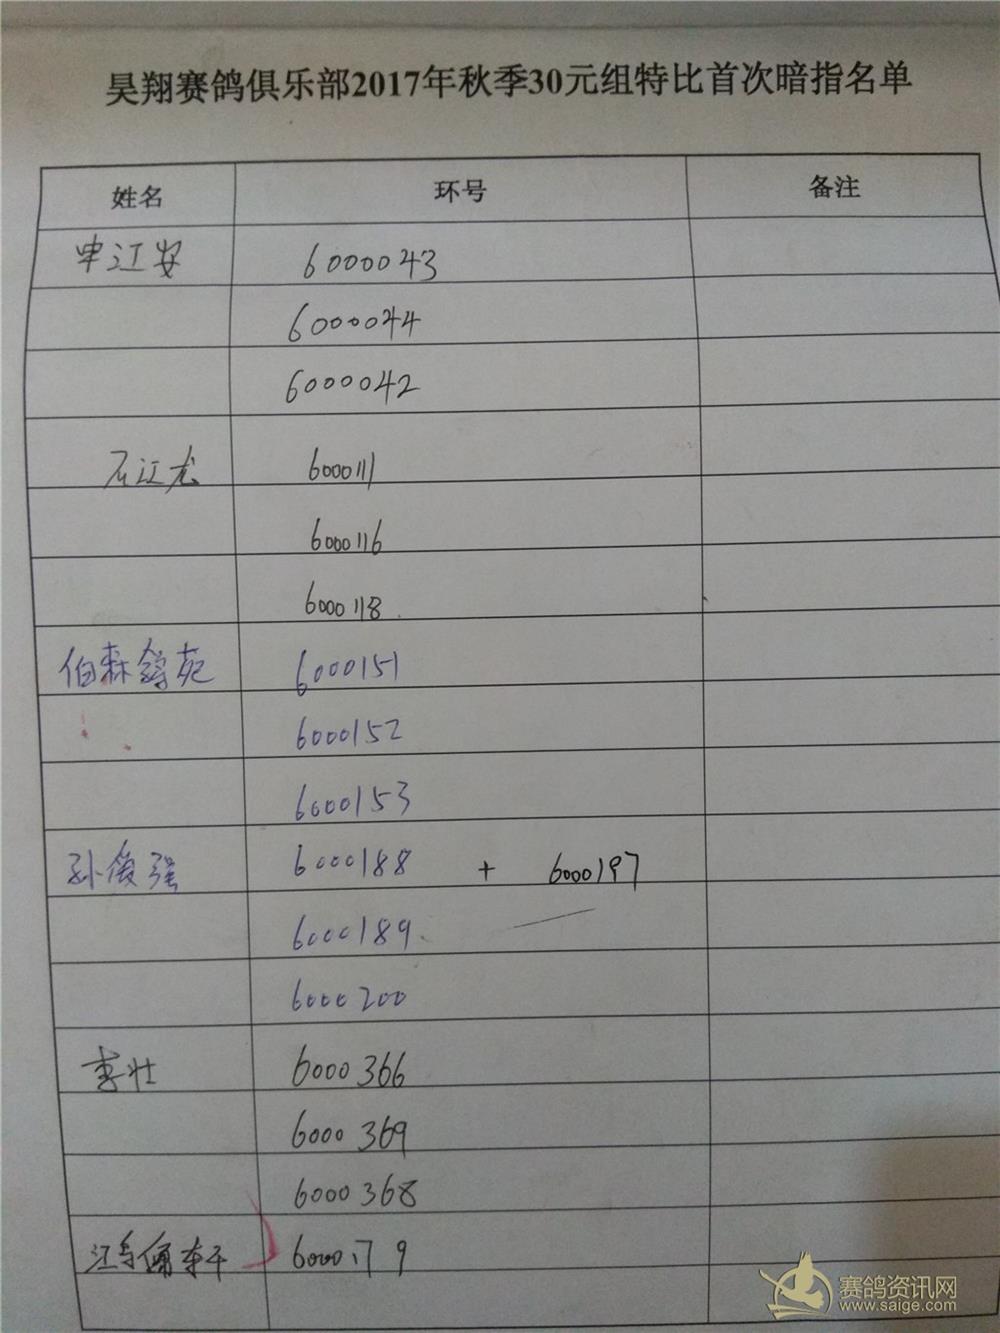 昊翔赛鸽俱乐部2017年秋季30元组特比首次暗指名单
姓名 环号 备注
申江安 6000043
6000044
6000042
石江龙 6000111
6000116
6000118
伯森鸽苑 6000151
6000152
6000153
孙俊强 6000188 + 6000197
6000189
6000200
李壮 6000366
6000369
6000368
6000179
赛鸽资讯网
www.saige.com